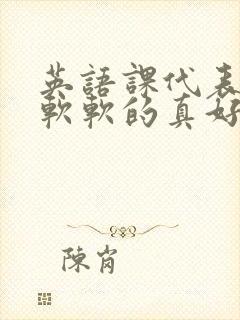 英語課代表
軟軟的真好
陳肖